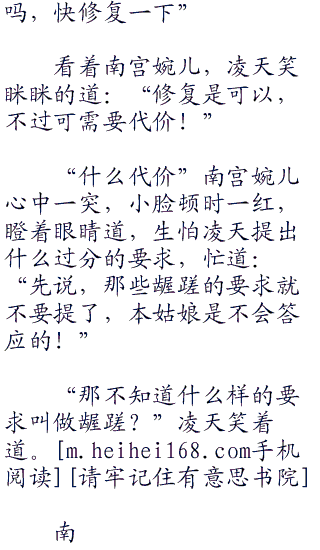 吗，快修复一下”
看着南宫婉儿，凌天笑
眯眯的道：“修复是可以，
不过可需要代价！”
“什么代价”南宫婉儿
心中一突，小脸顿时一红，
瞪着眼睛道，生怕凌天提出
什么过分的要求，忙道：
“先说，那些龌蹉的要求就
不要提了，本姑娘是不会答
应的！”
“那不知道什么样的要
求叫做龌蹉？”凌天笑着
道。[m.heihei168.com手机
阅读][请牢记住有意思书院]
南